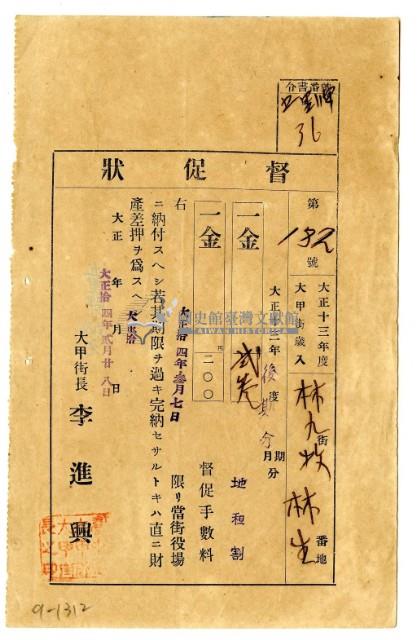 令書番號
36
督促狀
第 192 號
大正十三年度
大甲街歲入
林九牧 街
林生 番地
大正十三年度 後期分 期月分
一金 貳 地租割
一金 圓 二〇〇 督促手數料
右 大正拾四年參月七日 限リ當街役場
ニ納付スヘシ若其期限ヲ過キ完納セサルトキハ直ニ財
產差押ヲ爲スヘシ
大正 年 月 日
大正拾四年貳月廿八日
大甲街長 李進興
國史館臺灣文獻館
TAIWAN HISTORICA
9-1312